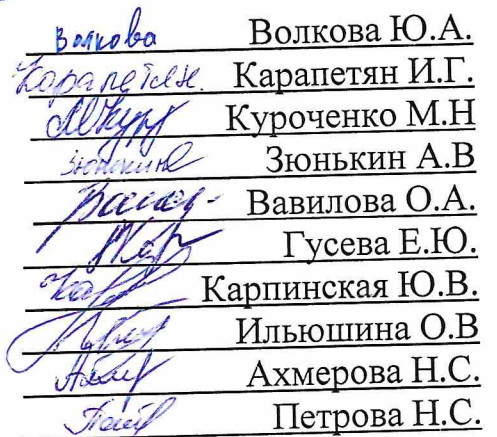 Волкова Волкова Ю.А.
Карапетян. Карапетян И.Г.
Куроченко М.Н
Зюнькин Зюнькин А.В
Вавилова О.А.
Гусева Е.Ю.
Карпинская Ю.В.
Ильюшина О.В
Ахмерова Н.С.
Петрова Н.С.